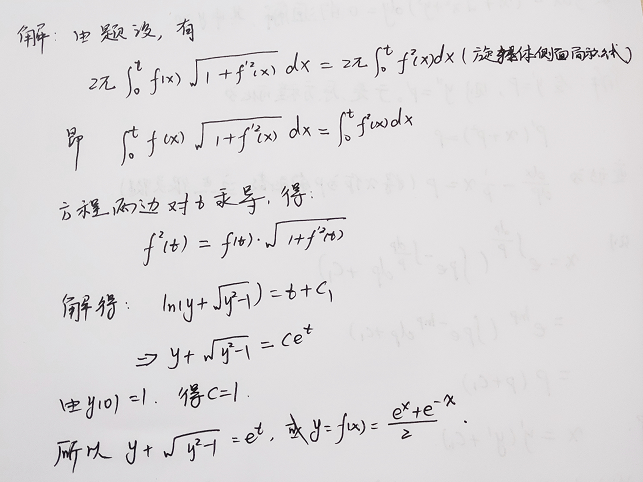 解：由题设，有
2π∫₀ᵗ f(x)√(1+f'²(x)) dx = 2π∫₀ᵗ f²(x)dx (旋转体侧面面积公式)
即 ∫₀ᵗ f(x)√(1+f'²(x)) dx = ∫₀ᵗ f²(x)dx
方程两边对t求导，得：
f²(t) = f(t)·√(1+f'²(t))
解得： ln(y+√(y²-1)) = t+C₁
⇒ y+√(y²-1) = Ceᵗ
由y(0)=1. 得C=1.
所以 y+√(y²-1) = eᵗ, 或y=f(x)=(eˣ+e⁻ˣ)/2.